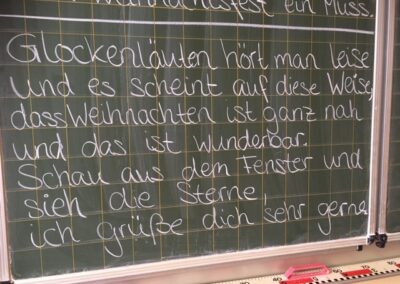 Weihnachtsfest ein Muss.
Glockenläuten hört man leise
und es scheint auf diese Weise,
dass Weihnachten ist ganz nah
und das ist wunderbar.
Schau aus dem Fenster und
sieh die Sterne,
ich grüße dich sehr gerne